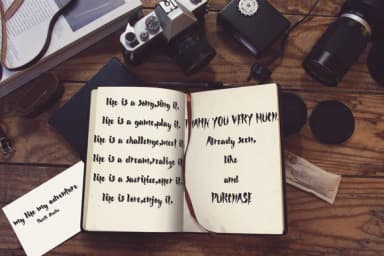 life is a song,sing it.
life is a game,play it.
life is a challenge,meet it.
life is a dream,realize it.
life is a sacrifice,offer it.
life is love,enjoy it.
THANK YOU VERY MUCH
Already seen,
like
and
PURCHASE
my life my adventure.